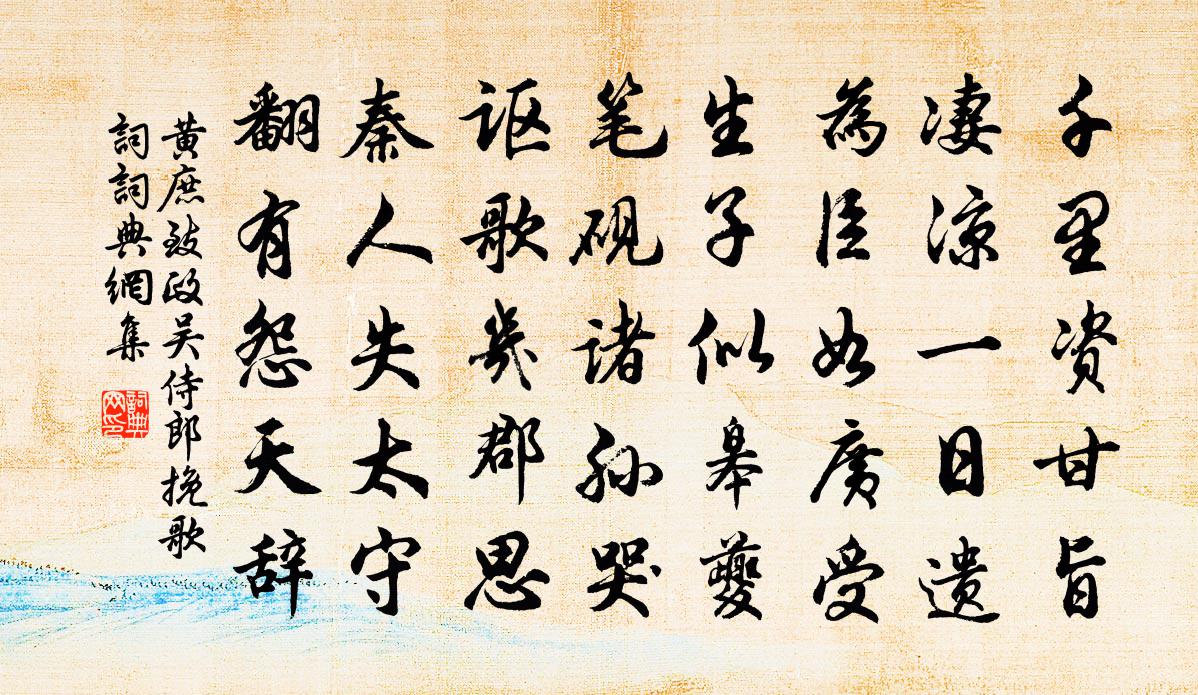 千里资甘旨
凄凉一日遗
為臣如廣受
生子似皋夔
笔砚诸孙哭
讴歌幾郡思
秦人失太守
翻有怨天辞
黄庶致政吴侍郎挽歌
詞詞典網集
詞典网印